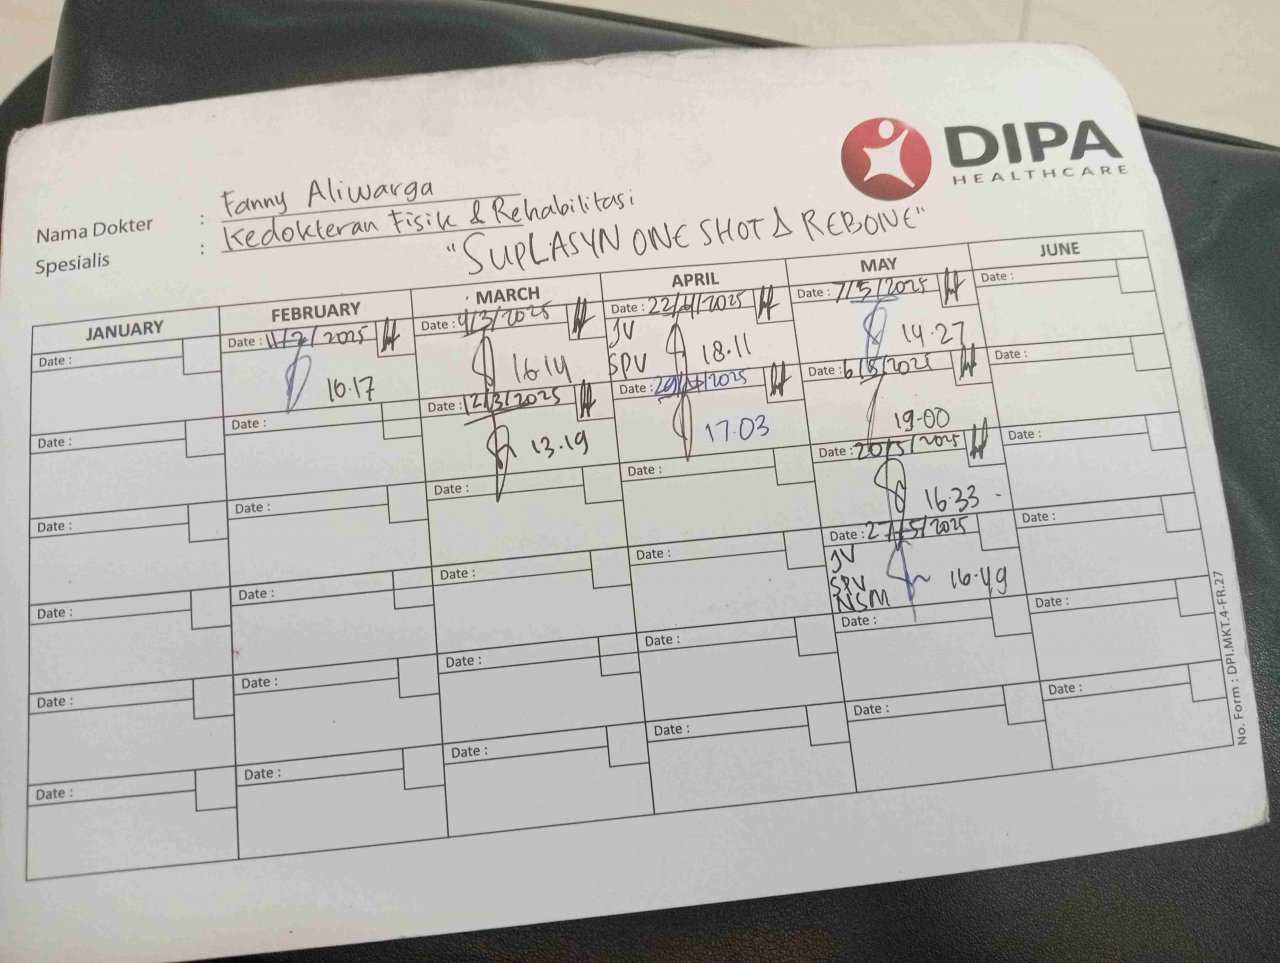 DIPA
HEALTHCARE
Nama Dokter : Fanny Aliwarga
Spesialis : Kedokteran Fisik & Rehabilitasi
"SUPLASYN ONE SHOT Δ REBONE"
JANUARY
Date :
Date :
Date :
Date :
Date :
Date :
FEBRUARY
Date : 11/2/2025
16.17
Date :
Date :
Date :
Date :
Date :
MARCH
Date : 4/3/2025
16.14
Date : 12/3/2025
13.19
Date :
Date :
Date :
Date :
APRIL
Date : 22/4/2025
JV
SPV
18.11
Date : 29/4/2025
17.03
Date :
Date :
Date :
Date :
MAY
Date : 7/5/2025
14.27
Date : 6/5/2025
19.00
Date : 20/5/2025
16.33
Date : 27/5/2025
JV
SPV
NSM
16.49
Date :
Date :
JUNE
Date :
Date :
Date :
Date :
Date :
Date :
No. Form : DPI.MKT.4-FR.27